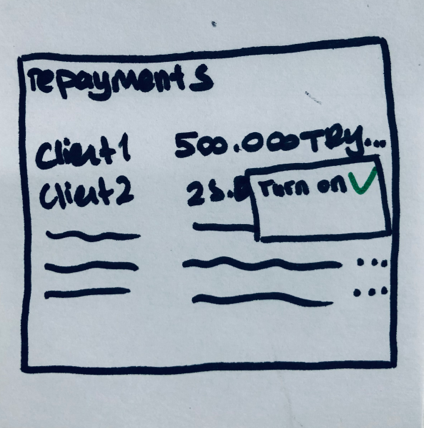 repayments
Client1 500.000TRY...
Client2 25.
Turn on ✓